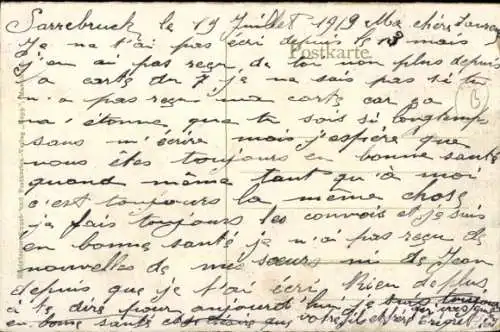 Sarrebruck, le 19 Juillet 1919 Ma chère
Je ne t'ai pas écri depuis le 18 mais
Postkarte
j'en ai pas reçu de toi non plus depuis
ta carte du 7 je ne sais pas si tu
n'a pas reçu ma carte car ça
m'étonne que tu sois si longtemp
sans m'écrire mais j'espère que
vous êtes toujours en bonne santé
quand même tant qu'à moi
c'est toujours la même chose
je fais toujours les convois et je suis
en bonne santé je n'ai pas reçu de
nouvelles de mes sœurs ni de Jean
depuis que je t'ai écri Rien de plus
à te dire pour aujourd'hui je
en bonne santé votre fils et frère